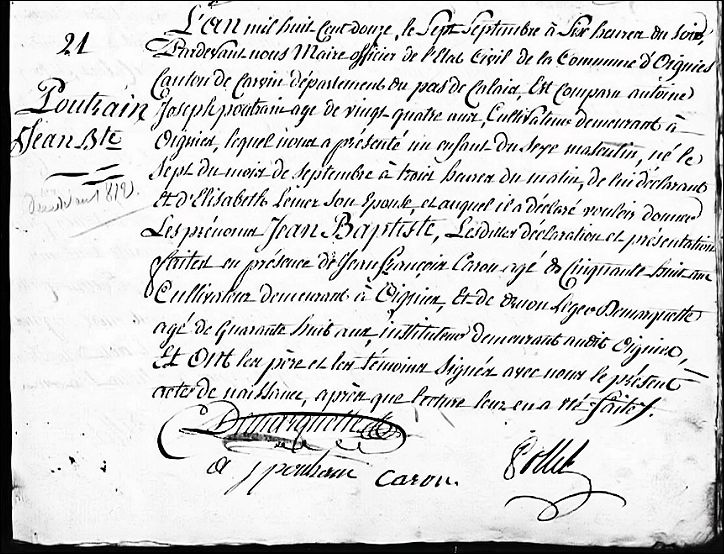 L'an mil huit cent douze, le Sept Septembre à Six heures du Soir,
21
Pardevant nous Maire officier de l'Etat Civil de la Commune d'Oignies
Canton de Carvin département du pas de Calais, Est comparu antoine
Poutrain
Jean Bte
Joseph poutrain agé de vingt quatre ans, Cultivateur demeurant à
Oignies, lequel nous a présenté un enfant du Sexe masculin, né le
Sept du mois de septembre à trois heures du matin, de lui déclarant
Et d'Elisabeth Lemer Son Epouse, et auquel il a déclaré vouloir donner
Les prénoms Jean Baptiste, Lesdittes déclaration et présentation
faites en présence de Jean François Caron agé de Cinquante huit ans
Cultivateur demeurant à Oignies, Et de Demarquette
agé de Quarante huit ans, instituteur demeurant audit Oignies,
Et Ont les père et les témoins Signés avec nous le présent
acte de naissance, après que lecture leur en a été faite.
Demarquette
a j poutrain caron.
Pollet